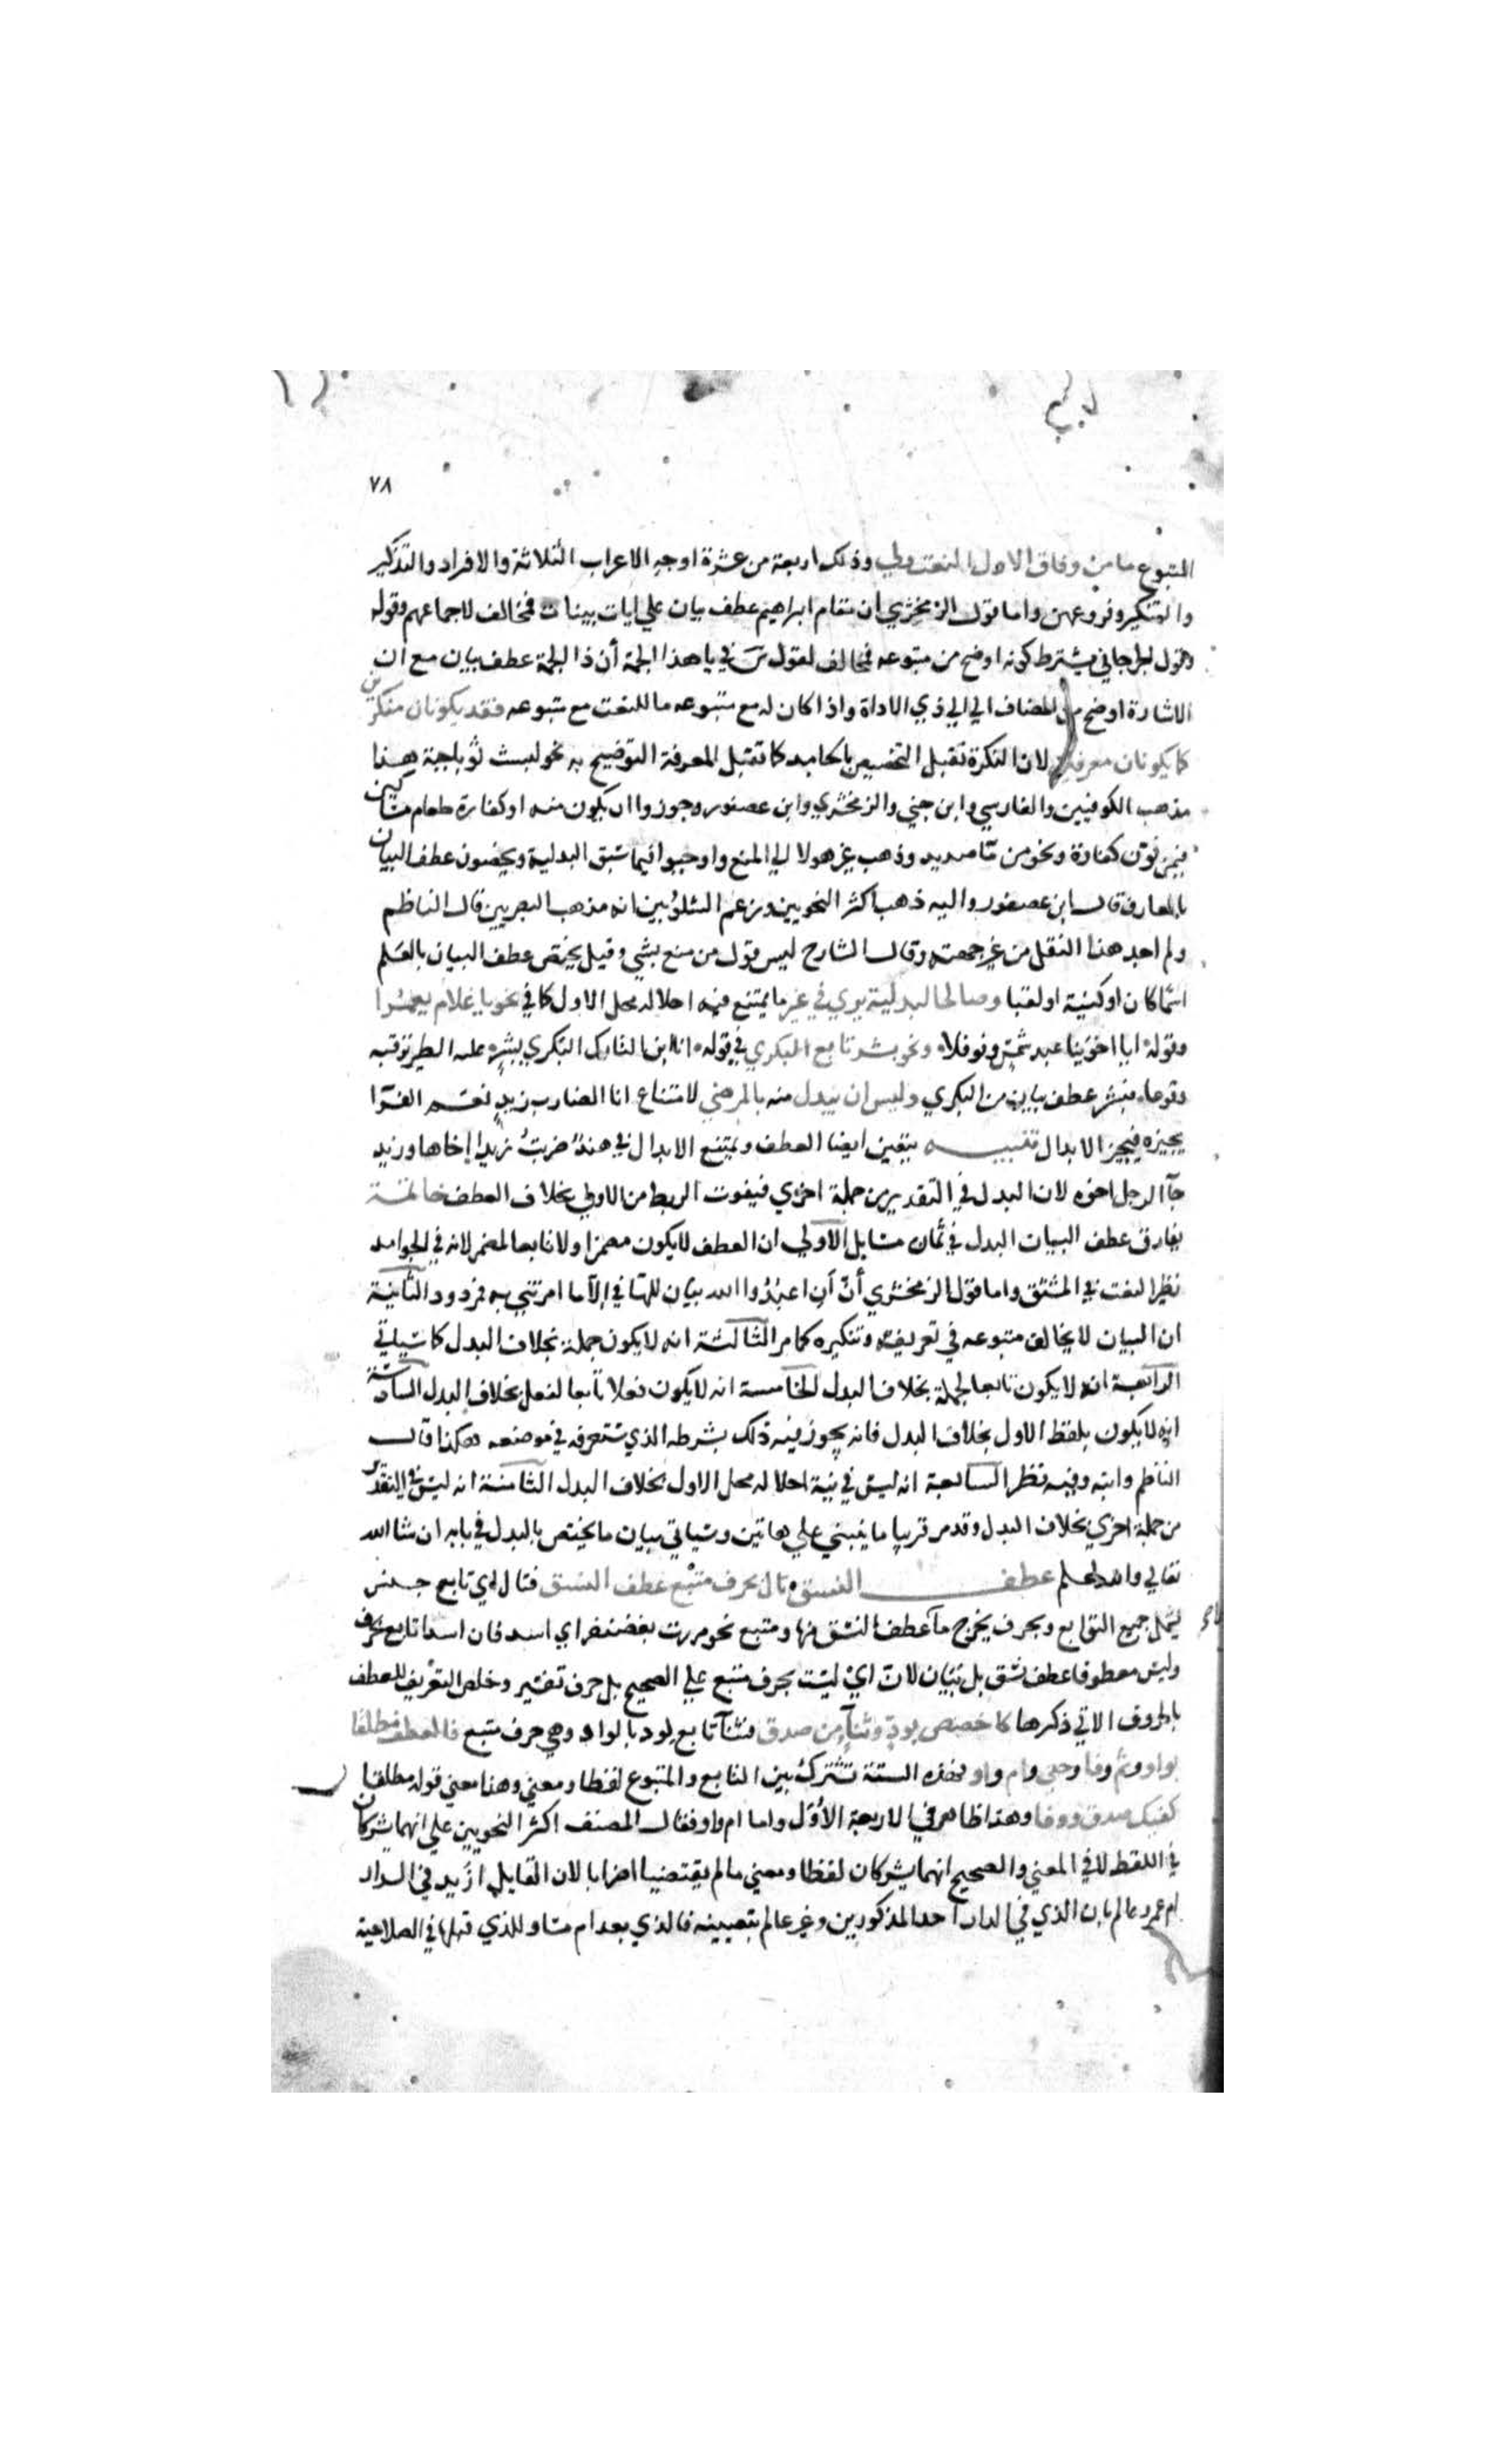 ٧٨
المتبوع ما من وفاق الاول النعت ولي وذلك اربعة من عشرة اوجه الاعراب الثلاثة والافراد والتذكير
والتنكير وفروعهن واما قول الزمخشري ان مقام ابراهيم عطف بيان علي ايات بينات فمخالف لاجماعهم وقوله
وقول الجرجاني يشترط كونه اوضح من متبوعه فمخالف لقول س في يا هذا الجمة أن ذا الجمة عطف بيان مع ان
الاشارة اوضح من المضاف الي الي ذي الاداة واذا كان له مع متبوعه ما للنعت مع متبوعه فقد يكونان منكرين
كما يكونان معرفين لان النكرة تقبل التخصيص بالجامد كما تقبل المعرفة التوضيح به نحو لبست ثوبا جبة هذا
مذهب الكوفيين والفارسي وابن جني والزمخشري وابن عصفور وجوزوا ان يكون منه او كفارة طعام مساكين
فيمن نون كفارة ونحو من ماء صديد وذهب غير هولا الي المنع واوجبوا فيما سبق البدلية ويخصون عطف البيان
بالمعارف قال ابن عصفور واليه ذهب اكثر النحويين وزعم الشلوبين انه مذهب البصريين قال الناظم
ولم اجد هذا النقل من غير جهته وقال الشارح ليس قول من منع بشي وقيل يختص عطف البيان بالعلم
اسما كان او كنية او لقبا وصالحا لبدلية يري في غير ما يمتنع فيه احلاله محل الاول كما في نحو يا غلام يعمرا
وقوله ايا اخوينا عبد شمس ونوفلا ونحو بشر تابع البكري في قوله انا ابن التارك البكري بشر عليه الطير ترقبه
وقوعا فبشر عطف بيان من البكري وليس ان يبدل منه بالمرضي لامتناع انا الضارب زيد نعم الفرا
يجيزه فيجيز الابدال تنبيه يتعين ايضا العطف ويمتنع الابدال في هند ضربت زيدا اخاها وزيد
جآ الرجل اخوه لان البدل في التقدير من جملة اخري فيفوت الربط من الاولي بخلاف العطف خاتمة
يفارق عطف البيان البدل في ثمان مسايل الاولي ان العطف لا يكون مضمرا ولا تابعا لمضمر لانه في الجوامد
نظير النعت في المشتق واما قول الزمخشري أن أن اعبدوا الله بيان للها في الا ما امرتني به فمردود الثانية
ان البيان لا يخالف متبوعه في تعريفه وتنكيره كما مر الثالثة انه لا يكون جملة بخلاف البدل كما سياتي
الرابعة انه لا يكون تابعا لجملة بخلاف البدل الخامسة انه لا يكون فعلا تابعا لفعل بخلاف البدل السادسة
انه لا يكون بلفظ الاول بخلاف البدل فانه يجوز فيه ذلك بشرطه الذي ستعرفه في موضعه هكذا قال
الناظم وابنه وفيه نظر السابعة انه ليس في نية احلاله محل الاول بخلاف البدل الثامنة انه ليس في التقدير
من جملة اخري بخلاف البدل وقد مر قريبا ما ينبني علي هاتين وسياتي بيان ما يختص بالبدل في بابه ان شا الله
تعالي والله اعلم عطف النسق تال بحرف متبع عطف النسق فتال اي تابع جنس
يشمل جميع التوابع وبحرف يخرج ما عطف النسق منها ومتبع نحو مررت بغضنفر اي اسد فان اسدا تابع بحرف
وليس معطوفا عطف نسق بل بيان لان اي ليست بحرف متبع علي الصحيح بل حرف تفسير وخلص التعريف للعطف
بالحروف الاتي ذكرها كاخصص بود وثناء من صدق فثنآ تابع لود بالواو وهي حرف متبع فالعطف مطلقا
بواو وثم وفا وحتي وام واو فهذه الستة تشترك بين التابع والمتبوع لفظا ومعني وهذا معني قوله مطلقا
كفيك صدق ووفا وهذا ظاهر في الاربعة الاول واما ام واو فقال المصنف اكثر النحويين علي انهما يشركان
في اللفظ لا في المعني والصحيح انهما يشركان لفظا ومعني ما لم يقتضيا اضرابا لان القايل ازيد في الدار
ام عمرو عالم بان الذي في الدار احد المذكورين وغير عالم بتعيينه فالذي بعد ام مساو للذي قبلها في الصلاحية